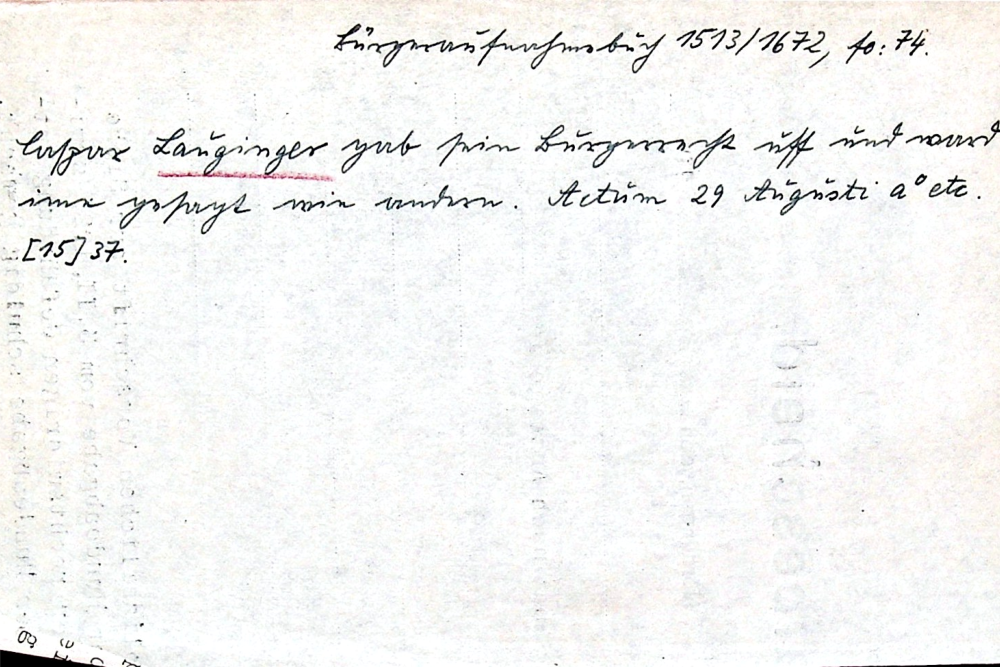 Bürgeraufnahmebuch 1513/1672, fo: 74.
Caspar Lauginger gab sein Burgerrecht uff und ward
ime gesagt wie andern. Actum 29 Augusti a° etc.
[15]37.